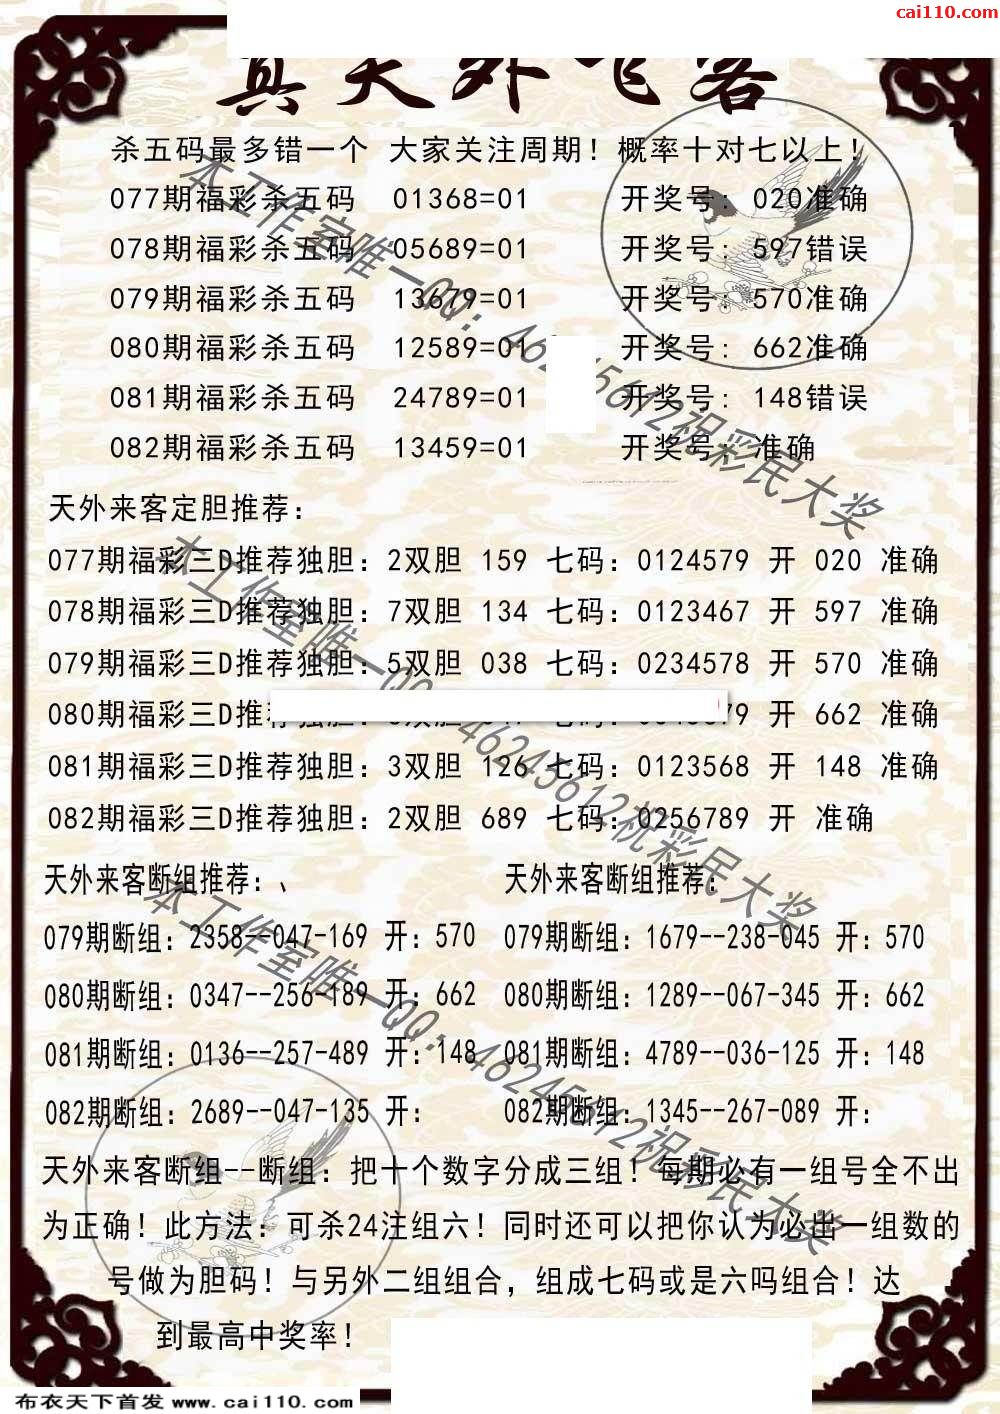 cai110.com
真天外飞客
杀五码最多错一个 大家关注周期！概率十对七以上！
077期福彩杀五码 01368=01 开奖号: 020准确
078期福彩杀五码 05689=01 开奖号: 597错误
079期福彩杀五码 13679=01 开奖号: 570准确
080期福彩杀五码 12589=01 开奖号: 662准确
081期福彩杀五码 24789=01 开奖号: 148错误
082期福彩杀五码 13459=01 开奖号: 准确
天外来客定胆推荐:
077期福彩三D推荐独胆: 2双胆 159 七码: 0124579 开 020 准确
078期福彩三D推荐独胆: 7双胆 134 七码: 0123467 开 597 准确
079期福彩三D推荐独胆: 5双胆 038 七码: 0234578 开 570 准确
080期福彩三D推荐独胆: 双胆 七码: 79 开 662 准确
081期福彩三D推荐独胆: 3双胆 126 七码: 0123568 开 148 准确
082期福彩三D推荐独胆: 2双胆 689 七码: 0256789 开 准确
天外来客断组推荐:、 天外来客断组推荐:
079期断组: 2358--047-169 开: 570 079期断组: 1679--238-045 开: 570
080期断组: 0347--256-189 开: 662 080期断组: 1289--067-345 开: 662
081期断组: 0136--257-489 开: 148 081期断组: 4789--036-125 开: 148
082期断组: 2689--047-135 开: 082期断组: 1345--267-089 开:
天外来客断组--断组: 把十个数字分成三组！每期必有一组号全不出
为正确！此方法: 可杀24注组六！同时还可以把你认为必出一组数的
号做为胆码！与另外二组组合，组成七码或是六吗组合！达
到最高中奖率！
本工作室唯一QQ: 46245612祝彩民大奖
本工作室唯一QQ: 46245612祝彩民大奖
本工作室唯一QQ: 46245612祝彩民大奖
布衣天下首发 www.cai110.com